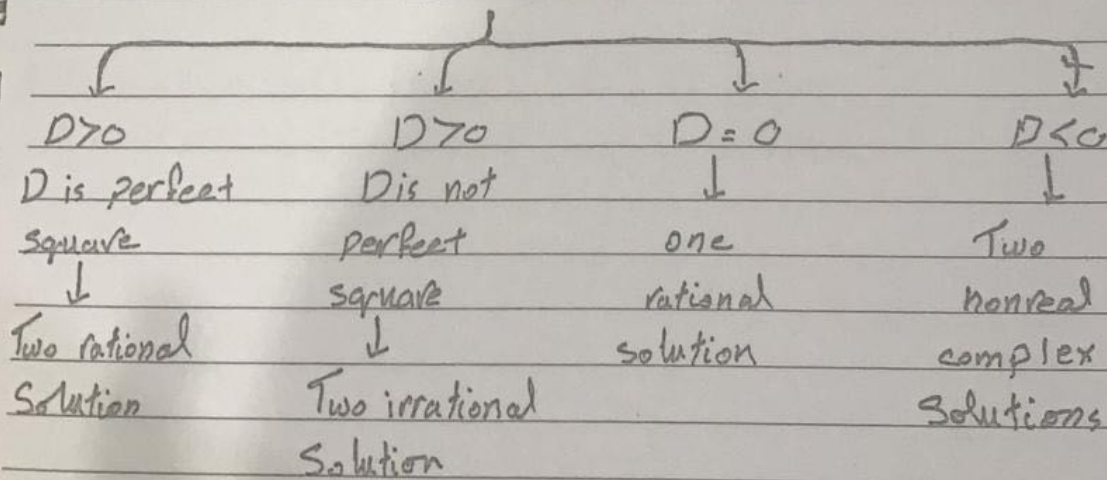 D>0
D is perfect
square
Two rational
Solution
D>0
D is not
perfect
square
Two irrational
Solution
D = 0
one
rational
solution
D<0
Two
nonreal
complex
Solutions